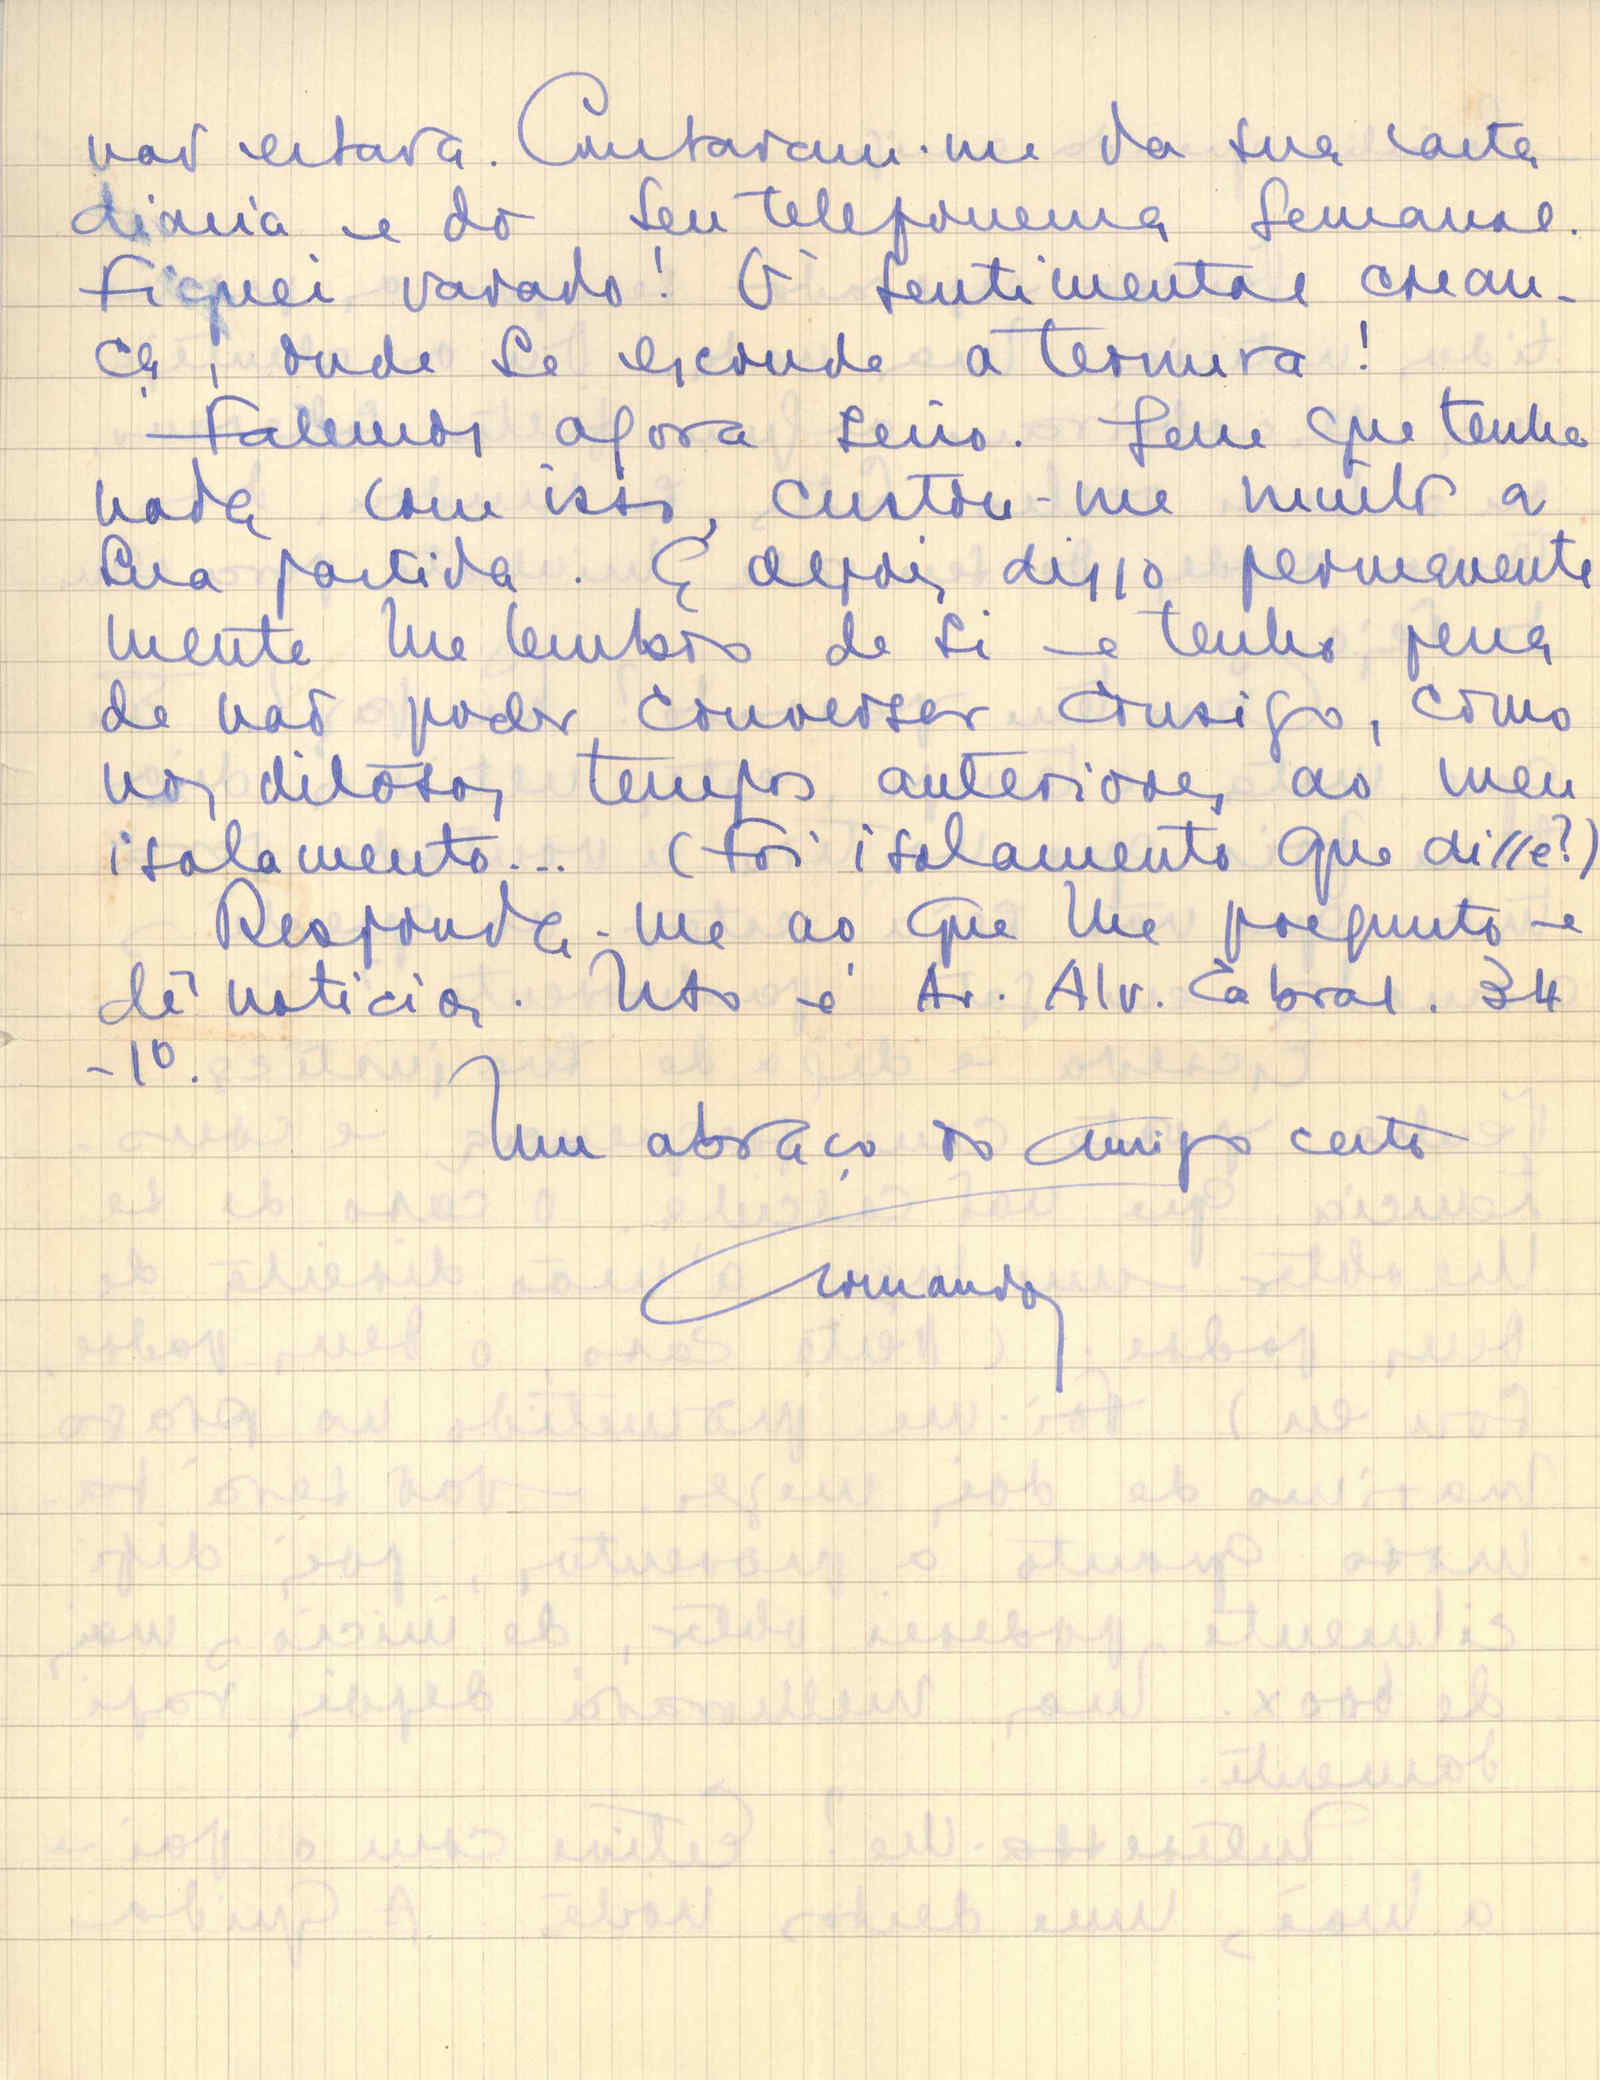 não estava. Contaram-me da sua carta
diaria e do seu telefonema semanal.
Fiquei varado! Ó sentimental crean-
ça, onde se esconde a ternura!
Falemos agora serio. Sem que tenha
nada com isso, custou-me muito a
sua partida. E depois disso permanente
mente me lembro de si e tenho pena
de não poder conversar consigo, como
nos ditosos tempos anteriores ao meu
isolamento... (Foi isolamento que disse?)
Responda-me ao que lhe pregunto e
dê noticias. Isto é Av. Alv. Cabral. 34
-1º.
Um abraço do amigo certo